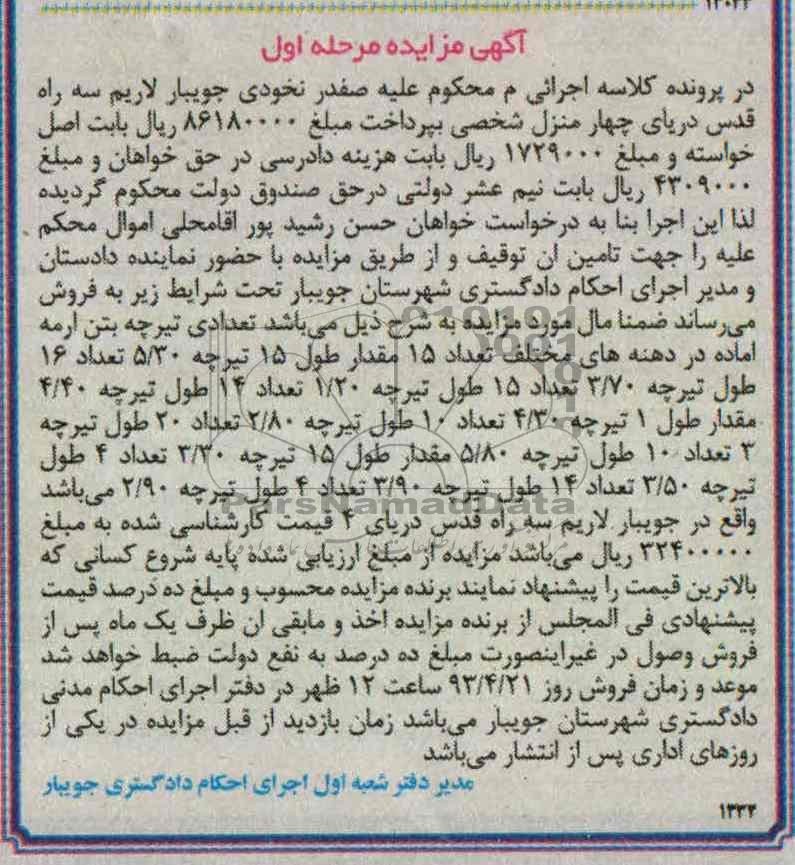 آگهی مزایده مرحله اول
در پرونده کلاسه اجرائی م محکوم علیه صفدر نخودی جویبار لاریم سه راه
قدس دریای چهار منزل شخصی بپرداخت مبلغ ۸۶۱۸۰۰۰۰ ریال بابت اصل
خواسته و مبلغ ۱۷۲۹۰۰۰ ریال بابت هزینه دادرسی در حق خواهان و مبلغ
۴۳۰۹۰۰۰ ریال بابت نیم عشر دولتی درحق صندوق دولت محکوم گردیده
لذا این اجرا بنا به درخواست خواهان حسن رشید پور اقامحلی اموال محکم
علیه را جهت تامین ان توقیف و از طریق مزایده با حضور نماینده دادستان
و مدیر اجرای احکام دادگستری شهرستان جویبار تحت شرایط زیر به فروش
می‌رساند ضمنا مال مورد مزایده به شرح ذیل می‌باشد تعدادی تیرچه بتن ارمه
اماده در دهنه های مختلف تعداد ۱۵ مقدار طول ۱۵ تیرچه ۵/۳۰ تعداد ۱۶
طول تیرچه ۳/۷۰ تعداد ۱۵ طول تیرچه ۱/۲۰ تعداد ۱۴ طول تیرچه ۴/۴۰
مقدار طول ۱ تیرچه ۴/۳۰ تعداد ۱۰ طول تیرچه ۲/۸۰ تعداد ۲۰ طول تیرچه
۳ تعداد ۱۰ طول تیرچه ۵/۸۰ مقدار طول ۱۵ تیرچه ۳/۳۰ تعداد ۴ طول
تیرچه ۳/۵۰ تعداد ۱۴ طول تیرچه ۳/۹۰ تعداد ۴ طول تیرچه ۲/۹۰ می‌باشد
واقع در جویبار لاریم سه راه قدس دریای ۴ قیمت کارشناسی شده به مبلغ
۳۲۴۰۰۰۰۰ ریال می‌باشد مزایده از مبلغ ارزیابی شده پایه شروع کسانی که
بالاترین قیمت را پیشنهاد نمایند برنده مزایده محسوب و مبلغ ده درصد قیمت
پیشنهادی فی المجلس از برنده مزایده اخذ و مابقی ان ظرف یک ماه پس از
فروش وصول در غیراینصورت مبلغ ده درصد به نفع دولت ضبط خواهد شد
موعد و زمان فروش روز ۹۳/۴/۲۱ ساعت ۱۲ ظهر در دفتر اجرای احکام مدنی
دادگستری شهرستان جویبار می‌باشد زمان بازدید از قبل مزایده در یکی از
روزهای اداری پس از انتشار می‌باشد
مدیر دفتر شعبه اول اجرای احکام دادگستری جویبار
۱۳۳۴
ParsNamadData